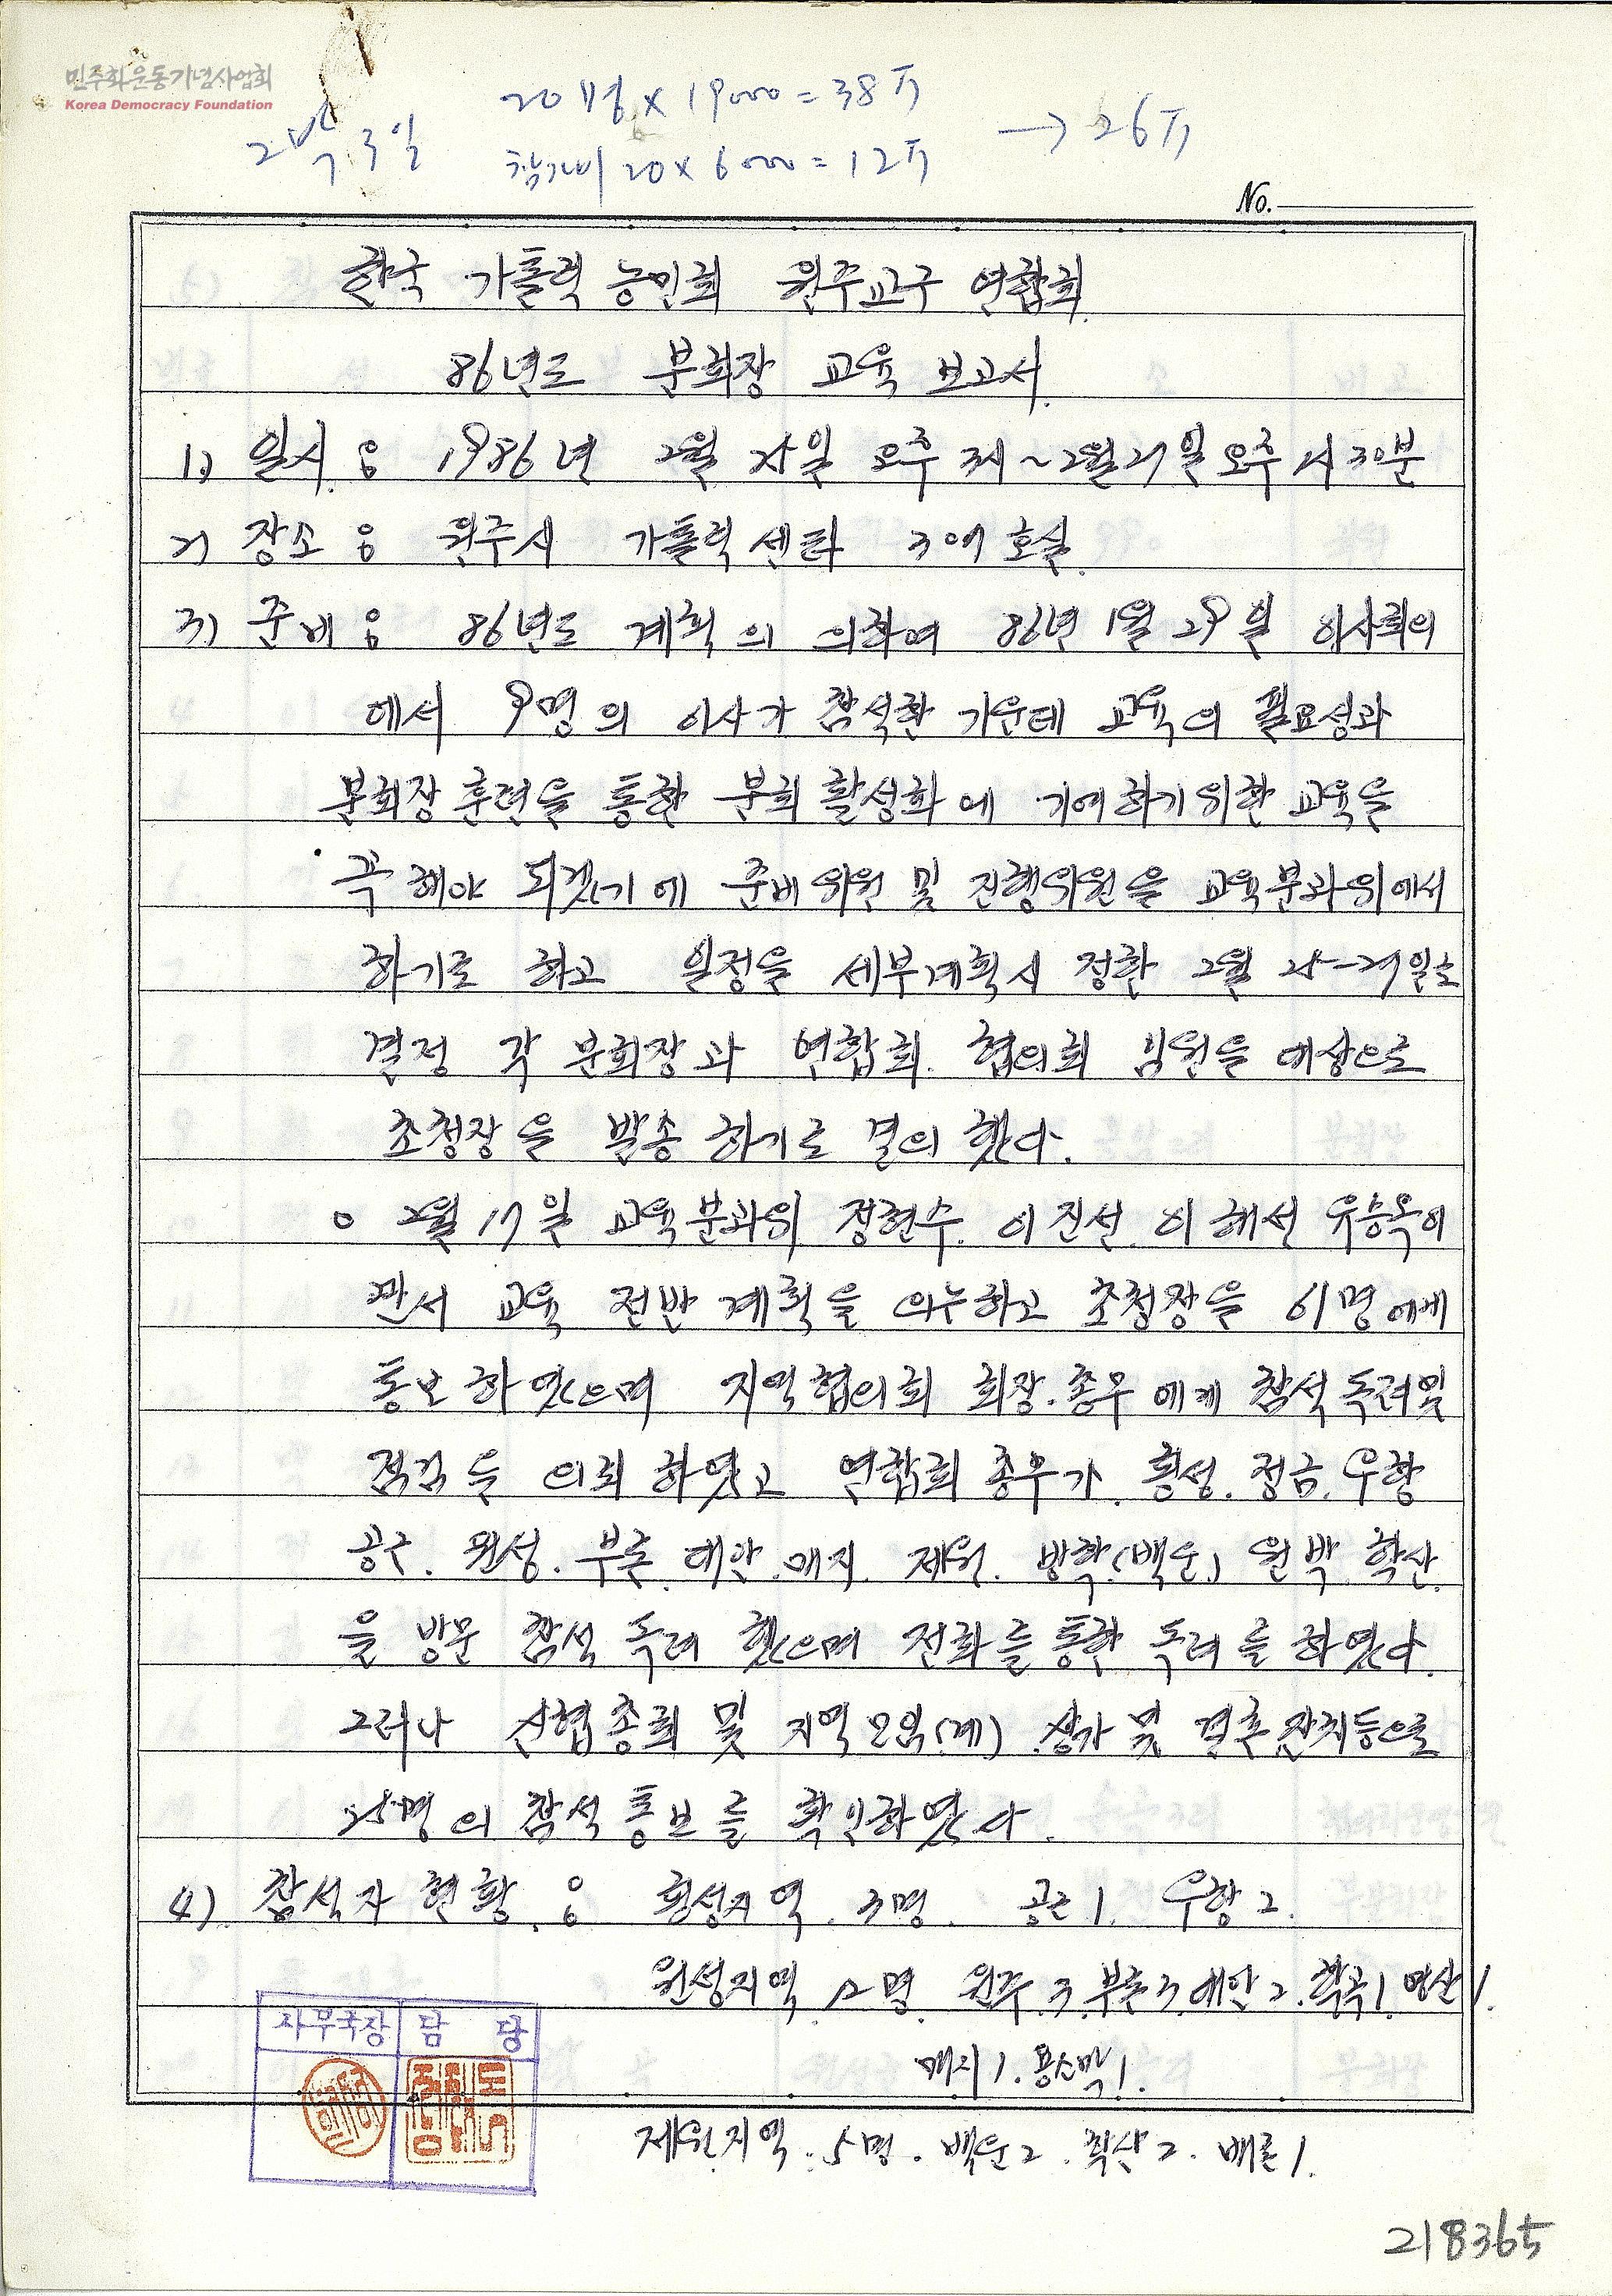 민주화운동기념사업회
Korea Democracy Foundation
2박 3일
20명 × 19000 = 38万
참가비 20 × 6000 = 12万
→ 26万
No.
한국 가톨릭 농민회 원주교구 연합회
86년도 분회장 교육 보고서
1) 일시 : 1986년 2월 25일 오후 3시 ~ 2월 27일 오후 1시 30분
2) 장소 : 원주시 가톨릭 센타 호실
3) 준비 : 86년도 계획의 의하여 86년 1월 29일 이사회의
에서 9명의 이사가 참석한 가운데 교육의 필요성과
분회장 훈련을 통한 분회 활성화에 기여하기 위한 교육을
꼭 해야 되겠기에 준비위원 및 진행위원을 교육분과위에서
하기로 하고 일정을 세부계획시 정한 2월 25-27일로
결정 각 분회장과 연합회. 협의회 임원을 대상으로
초청장을 발송하기로 결의 했다.
o 2월 17일 교육분과위 정현수. 이진선. 이해선 유승옥이
교육 전반 계획을 의논하고 초청장을 61명에게
통보 하였으며 지역협의회 회장. 총무에게 참석 독려및
점검을 의뢰 하였고 연합회 총무가. 횡성. 정금. 우항
공근. 원성. 부론. 대안. 매지. 제원. 방학(백운) 원박. 학산.
을 방문 참석 독려 했으며 전화를 통한 독려를 하였다.
그러나 신협총회 및 지역모임(계) 상가 및 결혼잔치등으로
25명의 참석 통보를 확인하였다.
4) 참석자 현황 : 횡성지역. 3명. 공근 1. 우항 2.
원성지역 12명. 원주 3. 부론 3. 대안 2. 학곡 1. 영산 1.
매지 1. 용소막 1.
사무국장 담당
제원지역. 5명. 백운 2. 학산 2. 배론 1.
218365